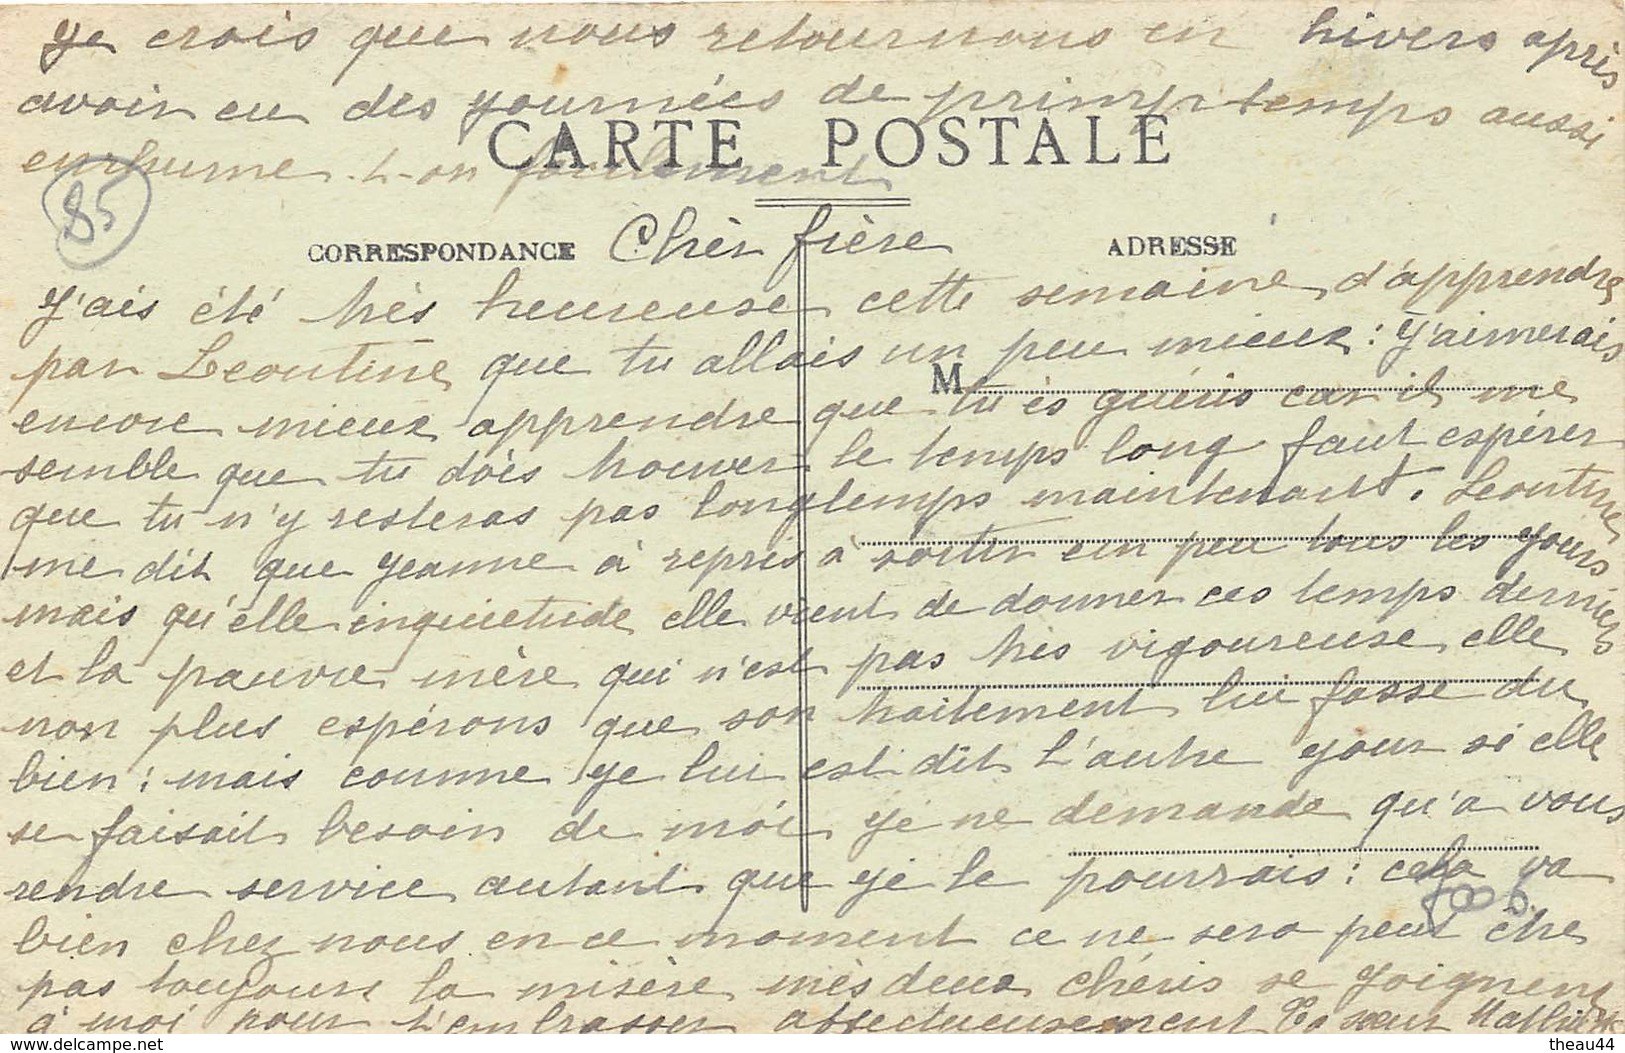 Je crois que nous retournons en hivers après
avoir eu des journées de primptemps aussi
enrhume t-on facilement
CARTE POSTALE
85
CORRESPONDANCE
Chèr frère
ADRESSE
J'ais été très heureuse cette semaine d'apprendre
par Leontine que tu allais un peu mieux : J'aimerais
M
encore mieux apprendre que tu ès guéris car il me
semble que tu dois trouver le temps long faut espérer
que tu n'y resteras pas longtemps maintenant. Leontine
me dit que Jeanne à repris à sortir un peu tous les jours
mais qu'elle inquietude elle vient de donner ces temps derniers
et la pauvre mère qui n'est pas très vigoureuse elle
non plus espérons que son traitement lui fasse du
bien : mais comme je lui est dit l'autre jour si elle
se faisait besoin de moi je ne demande qu'a vous
rendre service autant que je le pourrais : cela va
bien chez nous en ce moment ce ne sera peut être
pas toujours la misère mès deux chéris se joignent
à moi pour t'embrasser affectueusement Ta sœur
www.delcampe.net
theau44